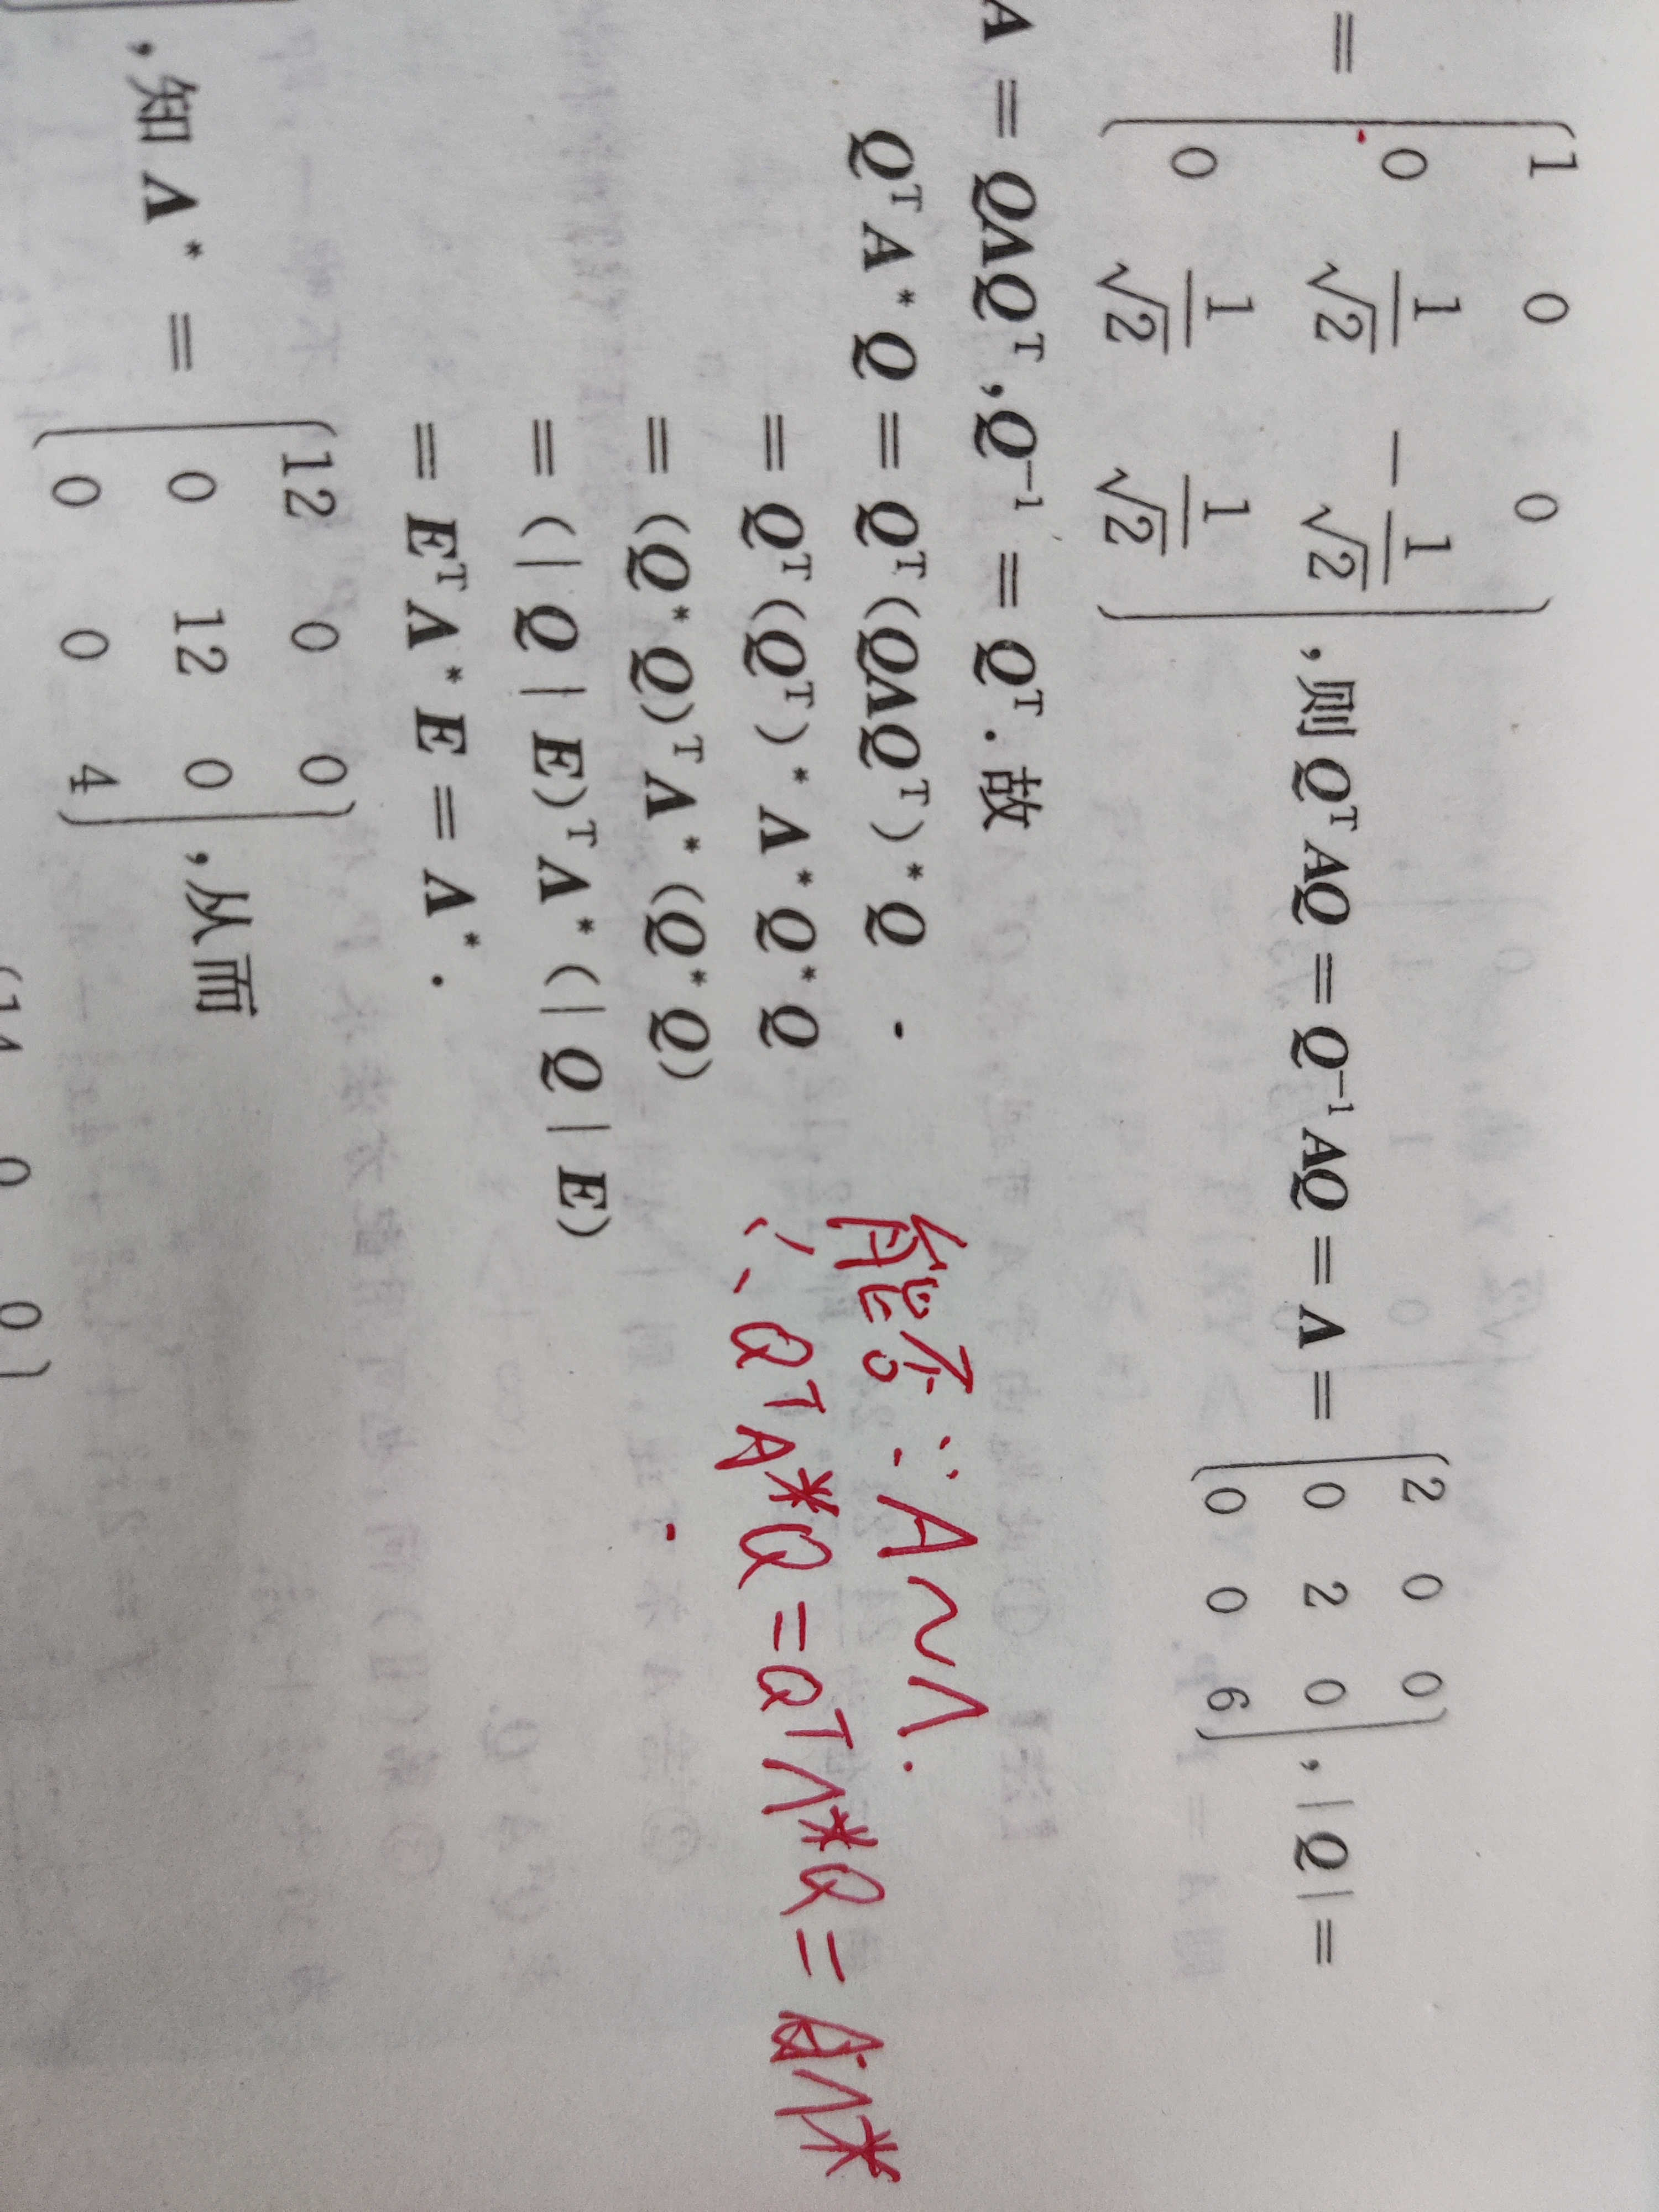 = (1 0 0
0 1/√2 -1/√2
0 1/√2 1/√2) ,则 QᵀAQ = Q⁻¹AQ = Λ = (2 0 0
0 2 0
0 0 6) ,|Q| =
A = QΛQᵀ,Q⁻¹ = Qᵀ. 故
QᵀA*Q = Qᵀ(QΛQᵀ)*Q
= Qᵀ(Qᵀ)*Λ*Q*Q
= (Q*Q)ᵀΛ*(Q*Q)
= (|Q|E)ᵀΛ*(|Q|E)
= EᵀΛ*E = Λ*.
能否∵A~Λ.
∴QᵀA*Q=QᵀΛ*Q=Λ*
,知 Λ* = (12 0 0
0 12 0
0 0 4) ,从而
(14 0 0)